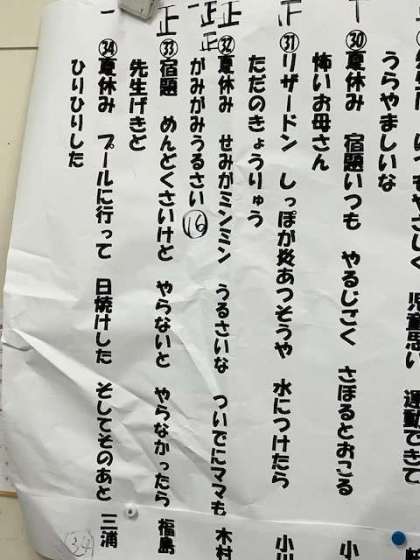 やさしく 児童思い 運動できて
うらやましいな
㉚夏休み 宿題いつも やるじごく さぼるとおこる 小
怖いお母さん
正
㉛リザードン しっぽが炎あつそうや 水につけたら 小川
ただのきょうりゅう
正正一
㉜夏休み せみがミンミン うるさいな ついでにママも 木村
がみがみうるさい ⑯
正
㉝宿題 めんどくさいけど やらないと やらなかったら 福島
先生げきど
一
㉞夏休み プールに行って 日焼けした そしてそのあと 三浦
ひりひりした
34